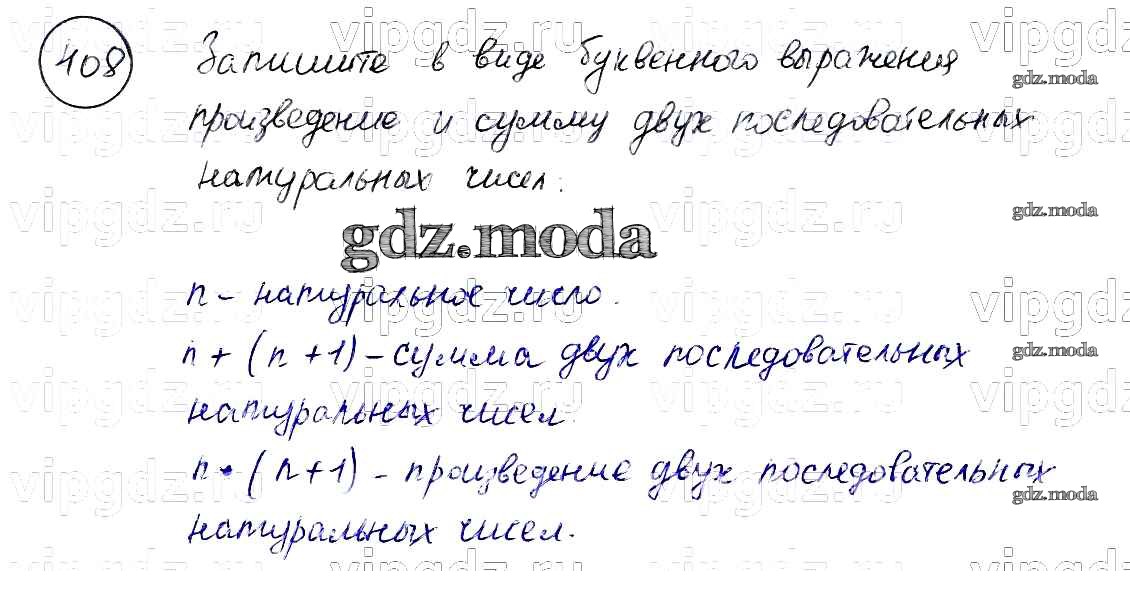 408 Запишите в виде буквенного выражения
произведение и сумму двух последовательных
натуральных чисел.
gdz.moda
n - натуральное число.
n + (n + 1) - сумма двух последовательных
натуральных чисел.
n · (n + 1) - произведение двух последовательных
натуральных чисел.
vipgdz.ru
gdz.moda